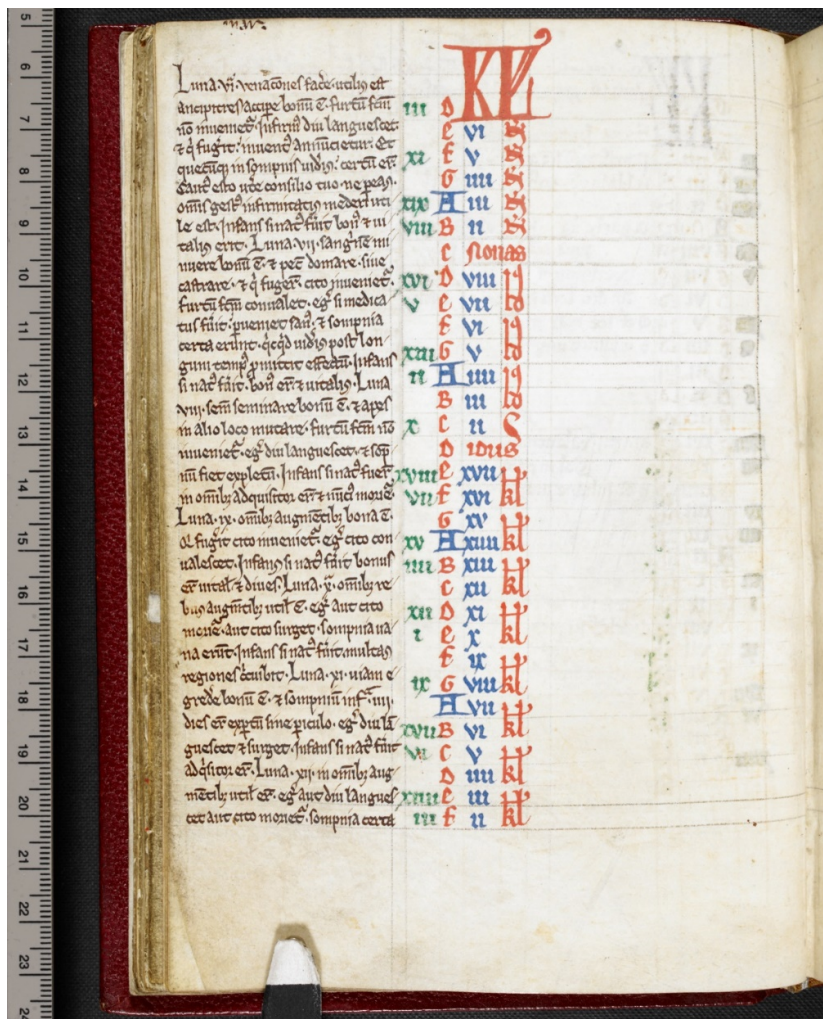 Luna vi venacōes facē utiliꝰ est
ancipitres accipe bonū ē furtū fcm̄
nō inveniet̄ Infirmꝰ diu languescet
⁊ q̄ fugit invent̄ annūcietur Et
quecūq in sompnis vidis certū er̄
consilio tuo ne peas
omīs infirmitatis mederi uti
le est Infans si natꝰ fūit bonꝰ ⁊ ui
talis erit Luna vii sangnē mi
nuere bonū ē ⁊ domare sive
castrare ⁊ q̄ fuger̄ cito inveniet̄
furtū fcm̄ convalet eḡ si medica
tus fūit pveniet sanꝰ ⁊ sompnia
certa erunt qcqd vidis post lon
gum tempꝰ effectū Infans
si natꝰ fūit bonꝰ er̄ ⁊ vitalis Luna
viii sem̄ seminare bonū ē ⁊ apes
in alio loco mutare furtū fcm̄ nō
inveniet̄ eḡ diu languescet ⁊ sōp
nū fiet expletū Infans si natꝰ fuer̄
in omīb adquisitor er̄ ⁊
Luna ix omībꝫ augmētībꝫ bona ē
Q̄i fugit cito inveniet̄ eḡ cito con
valescet Infans si natꝰ fūit bonus
er̄ vital̄ ⁊ dives Luna x omībꝫ re
bus augmtībꝫ util̄ ē eḡ aut cito
aut cito surget sompnia va
na erūt Infans si natꝰ fūit multas
regiones Luna xi viam e
grede bonū ē ⁊ sompniū inf̄ iiii
dies er̄ exptū sine piculo eḡ diu lā
guescet ⁊ surget Infans si natꝰ fūit
adqsitor er̄ Luna xii in omībꝫ aug
mētībꝫ util̄ er̄ eḡ aut diu langues
cet aut cito moriet̄ sompnia certa
KL
iii D
e vi N
xi f v N
G iiii N
xix A iii N
viii B ii N
C Nonas
xvi D viii Id
v e vii
f vi Id
xiii G v
ii A iiii Id
B iii
x C ii
D idus
xviii e xvii kl
vii f xvi
G xv kl
xv A xiiii
iiii B xiii kl
C xii
xii D xi kl
i e x
f ix kl
ix G viii
A vii kl
xvii B vi
vi C v kl
D iiii
xiiii e iii kl
iii f ii